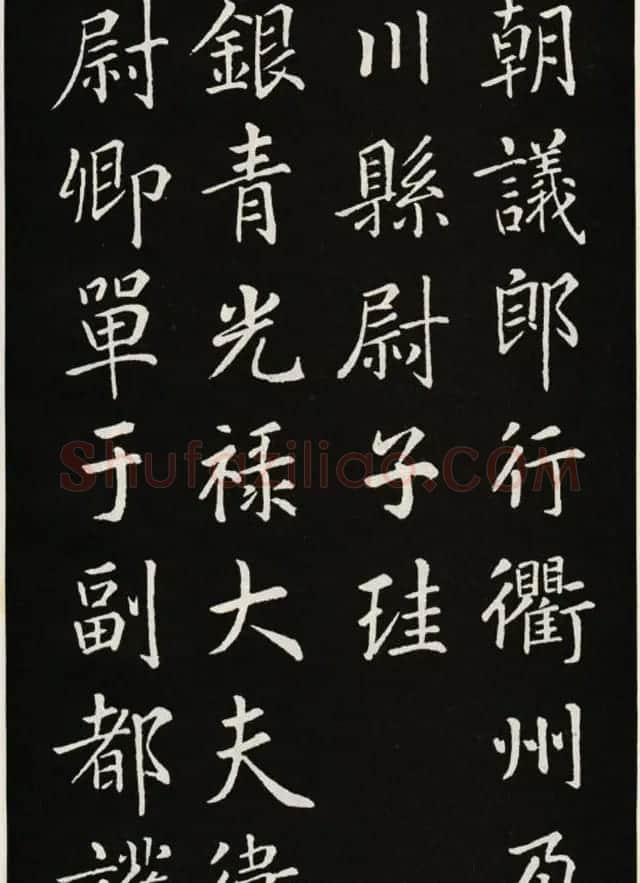 朝議郎行衢州
川縣尉子珪
銀青光禄大夫
尉卿單于副都護
Shufaziliao.COM